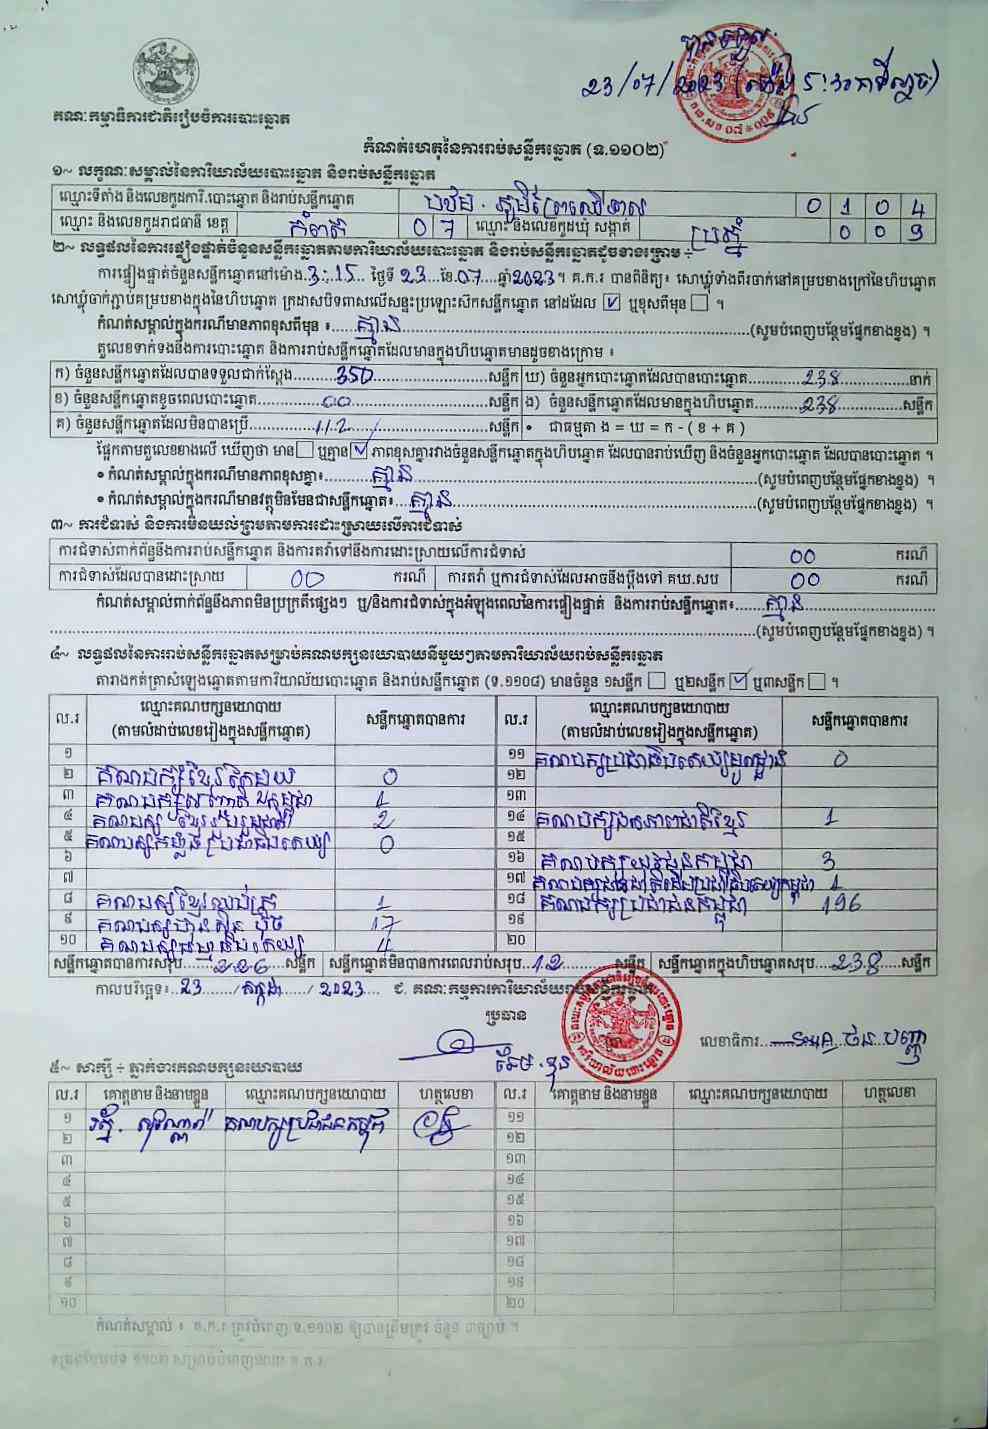 បានទទួល
23/07/2023 (ម៉ោង 5:30 នាទីល្ងាច)
គណៈកម្មាធិការជាតិរៀបចំការបោះឆ្នោត
កំណត់ហេតុនៃការរាប់សន្លឹកឆ្នោត (ទ.១១០២)
១~ លក្ខណៈសម្គាល់នៃការិយាល័យបោះឆ្នោត និងរាប់សន្លឹកឆ្នោត
ឈ្មោះទីតាំង និងលេខកូដការិ.បោះឆ្នោត និងរាប់សន្លឹកឆ្នោត 0 1 0 4
ឈ្មោះ និងលេខកូដរាជធានី ខេត្ត កំពត 0 7 ឈ្មោះ និងលេខកូដឃុំ សង្កាត់ 0 0 9
២~ លទ្ធផលនៃការផ្ទៀងផ្ទាត់ចំនួនសន្លឹកឆ្នោតតាមការិយាល័យបោះឆ្នោត និងរាប់សន្លឹកឆ្នោតដូចខាងក្រោម ÷
ការផ្ទៀងផ្ទាត់ចំនួនសន្លឹកឆ្នោតនៅម៉ោង.3:15... ថ្ងៃទី 23..ខែ.07....ឆ្នាំ2023.។ គ.ក.រ បានពិនិត្យ៖ សោឃ្លុំទាំងពីរចាក់នៅគម្របខាងក្រៅនៃហិបឆ្នោត
សោឃ្លុំចាក់ភ្ជាប់គម្របខាងក្នុងនៃហិបឆ្នោត ក្រដាសបិទពាសលើសន្ទះប្រឡោះសឹកសន្លឹកឆ្នោត នៅដដែល ☑ ឬខុសពីមុន ☐ ។
កំណត់សម្គាល់ក្នុងករណីមានភាពខុសពីមុន ៖.....គ្មាន.....(សូមបំពេញបន្ថែមផ្នែកខាងខ្នង) ។
តួលេខទាក់ទងនឹងការបោះឆ្នោត និងការរាប់សន្លឹកឆ្នោតដែលមានក្នុងហិបឆ្នោតមានដូចខាងក្រោម ៖
ក) ចំនួនសន្លឹកឆ្នោតដែលបានទទួលជាក់ស្តែង.....350.....សន្លឹក ឃ) ចំនួនអ្នកបោះឆ្នោតដែលបានបោះឆ្នោត.....238.....នាក់
ខ) ចំនួនសន្លឹកឆ្នោតខូចពេលបោះឆ្នោត.....00.....សន្លឹក ង) ចំនួនសន្លឹកឆ្នោតដែលមានក្នុងហិបឆ្នោត.....238.....សន្លឹក
គ) ចំនួនសន្លឹកឆ្នោតដែលមិនបានប្រើ.....112.....សន្លឹក • ជាធម្មតា ង = ឃ = ក - ( ខ + គ )
ផ្អែកតាមតួលេខខាងលើ ឃើញថា មាន ☐ ឬគ្មាន ☑ ភាពខុសគ្នារវាងចំនួនសន្លឹកឆ្នោតក្នុងហិបឆ្នោត ដែលបានរាប់ឃើញ និងចំនួនអ្នកបោះឆ្នោត ដែលបានបោះឆ្នោត ។
• កំណត់សម្គាល់ក្នុងករណីមានភាពខុសគ្នា៖.....គ្មាន.....(សូមបំពេញបន្ថែមផ្នែកខាងខ្នង) ។
• កំណត់សម្គាល់ក្នុងករណីមានវត្ថុមិនមែនជាសន្លឹកឆ្នោត៖.....គ្មាន.....(សូមបំពេញបន្ថែមផ្នែកខាងខ្នង) ។
៣~ ការជំទាស់ និងការមិនយល់ព្រមតាមការដោះស្រាយលើការជំទាស់
ការជំទាស់ពាក់ព័ន្ធនឹងការរាប់សន្លឹកឆ្នោត និងការតវ៉ាទៅនឹងការដោះស្រាយលើការជំទាស់ 00 ករណី
ការជំទាស់ដែលបានដោះស្រាយ 00 ករណី ការតវ៉ា ឬការជំទាស់ដែលអាចនឹងប្តឹងទៅ គឃ.សប 00 ករណី
កំណត់សម្គាល់ពាក់ព័ន្ធនឹងភាពមិនប្រក្រតីផ្សេងៗ ឬ/និងការជំទាស់ក្នុងអំឡុងពេលនៃការផ្ទៀងផ្ទាត់ និងការរាប់សន្លឹកឆ្នោត៖.....គ្មាន.....
.....(សូមបំពេញបន្ថែមផ្នែកខាងខ្នង) ។
៤~ លទ្ធផលនៃការរាប់សន្លឹកឆ្នោតសម្រាប់គណបក្សនយោបាយនីមួយៗតាមការិយាល័យរាប់សន្លឹកឆ្នោត
តារាងកត់ត្រាសំឡេងឆ្នោតតាមការិយាល័យបោះឆ្នោត និងរាប់សន្លឹកឆ្នោត (ទ.១១០៨) មានចំនួន ១សន្លឹក ☐ ឬ២សន្លឹក ☑ ឬ៣សន្លឹក ☐ ។
ល.រ ឈ្មោះគណបក្សនយោបាយ (តាមលំដាប់លេខរៀងក្នុងសន្លឹកឆ្នោត) សន្លឹកឆ្នោតបានការ ល.រ ឈ្មោះគណបក្សនយោបាយ (តាមលំដាប់លេខរៀងក្នុងសន្លឹកឆ្នោត) សន្លឹកឆ្នោតបានការ
១ ១១ គណបក្សប្រជាធិបតេយ្យមូលដ្ឋាន 0
២ គណបក្សខ្មែរតែមួយ 0 ១២
៣ 1 ១៣
៤ គណបក្សខ្មែររួបរួមជាតិ 2 ១៤ គណបក្សឯកភាពជាតិខ្មែរ 1
៥ គណបក្សកម្លាំងប្រជាធិបតេយ្យ 0 ១៥
៦ ១៦ គណបក្សយុវជនកម្ពុជា 3
៧ ១៧ 1
៨ គណបក្សខ្មែរឈប់ក្រ 1 ១៨ គណបក្សប្រជាជនកម្ពុជា 196
៩ គណបក្សហ្វ៊ុនស៊ិនប៉ិច 17 ១៩
១០ គណបក្សធម្មាធិបតេយ្យ 4 ២០
សន្លឹកឆ្នោតបានការសរុប.....226....សន្លឹក សន្លឹកឆ្នោតមិនបានការពេលរាប់សរុប..12.....សន្លឹក សន្លឹកឆ្នោតក្នុងហិបឆ្នោតសរុប....238..សន្លឹក
កាលបរិច្ឆេទ៖..23....../កក្កដា....../2023.... ជ. គណៈកម្មការការិយាល័យរាប់សន្លឹកឆ្នោត
ប្រធាន
លេខាធិការ
៥~ សាក្សី ÷ ភ្នាក់ងារគណបក្សនយោបាយ
ល.រ គោត្តនាម និងនាមខ្លួន ឈ្មោះគណបក្សនយោបាយ ហត្ថលេខា ល.រ គោត្តនាម និងនាមខ្លួន ឈ្មោះគណបក្សនយោបាយ ហត្ថលេខា
១ គណបក្សប្រជាជនកម្ពុជា ១១
២ ១២
៣ ១៣
៤ ១៤
៥ ១៥
៦ ១៦
៧ ១៧
៨ ១៨
៩ ១៩
១០ ២០
កំណត់សម្គាល់ ៖ គ.ក.រ ត្រូវបំពេញ ទ.១១០២ ឱ្យបានត្រឹមត្រូវ ចំនួន ៣ច្បាប់ ។